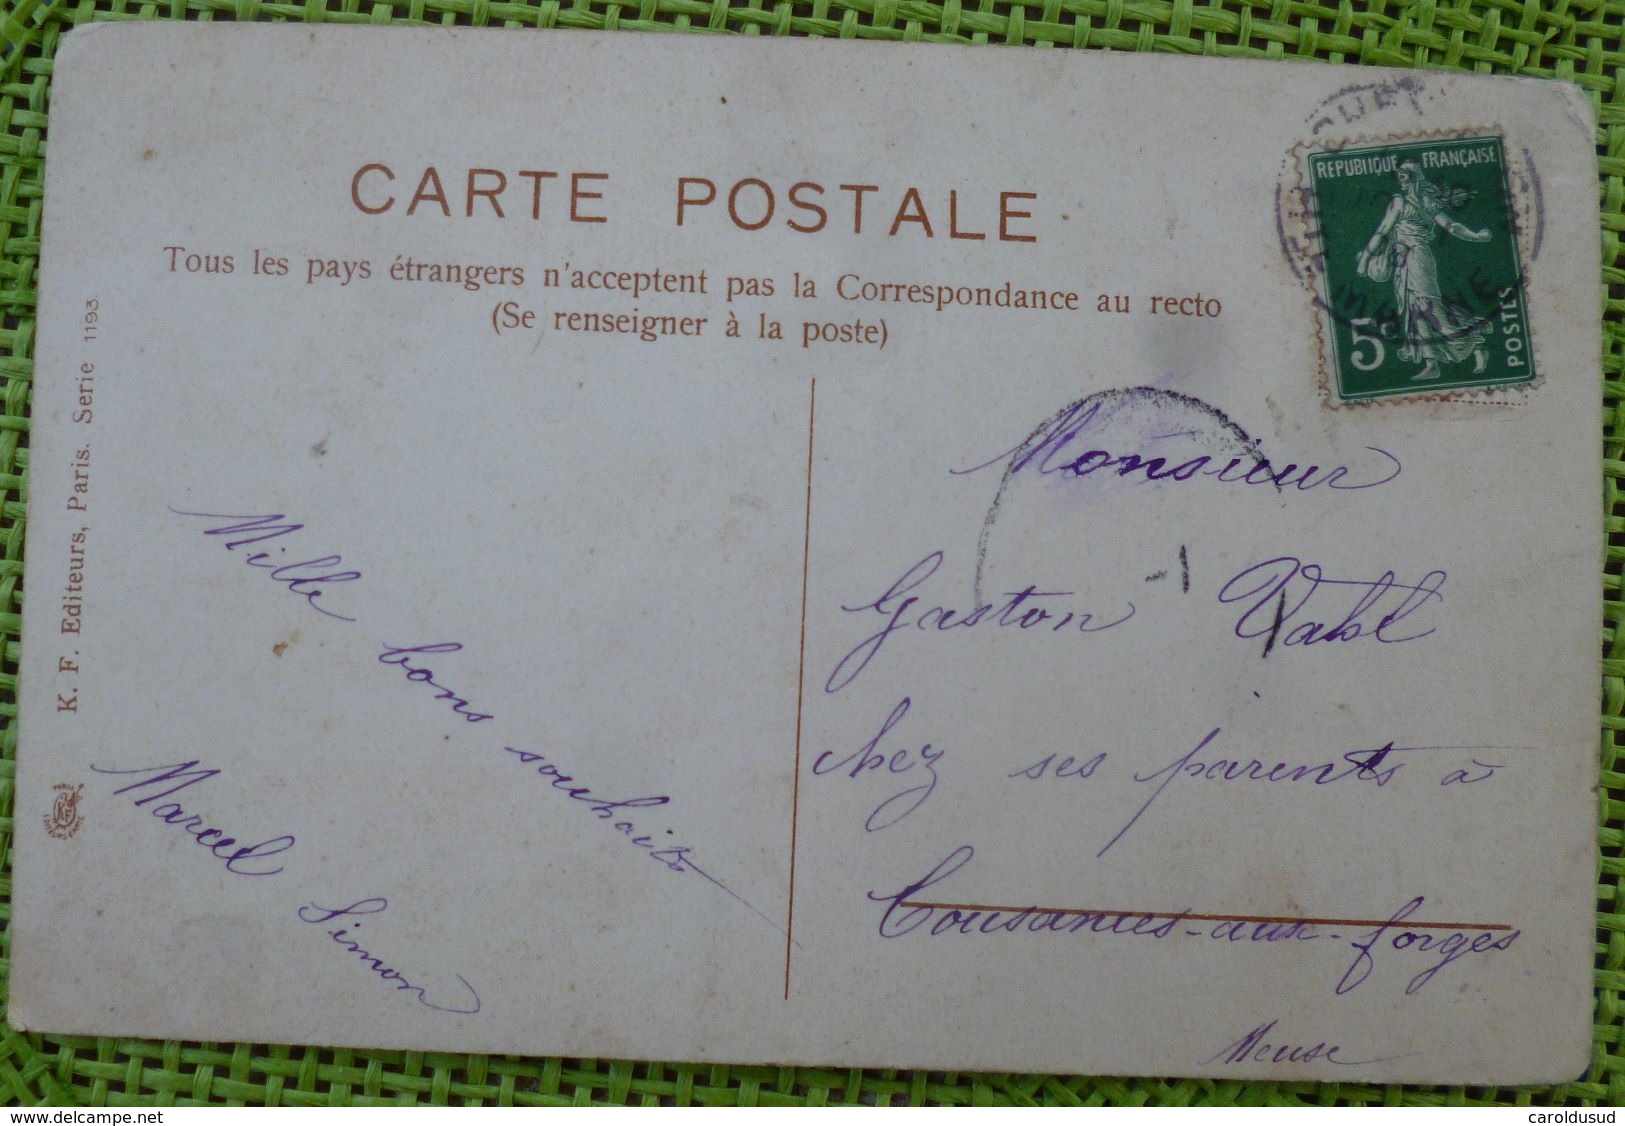 CARTE POSTALE
Tous les pays étrangers n'acceptent pas la Correspondance au recto
(Se renseigner à la poste)
K. F. Editeurs, Paris. Serie 1193
REPUBLIQUE FRANÇAISE
5c
POSTES
MARNE
Mille bons souhaits
Marcel Simon
Monsieur
Gaston Vahl
chez ses parents à
Cousances-aux-forges
Meuse
www.delcampe.net
caroldusud